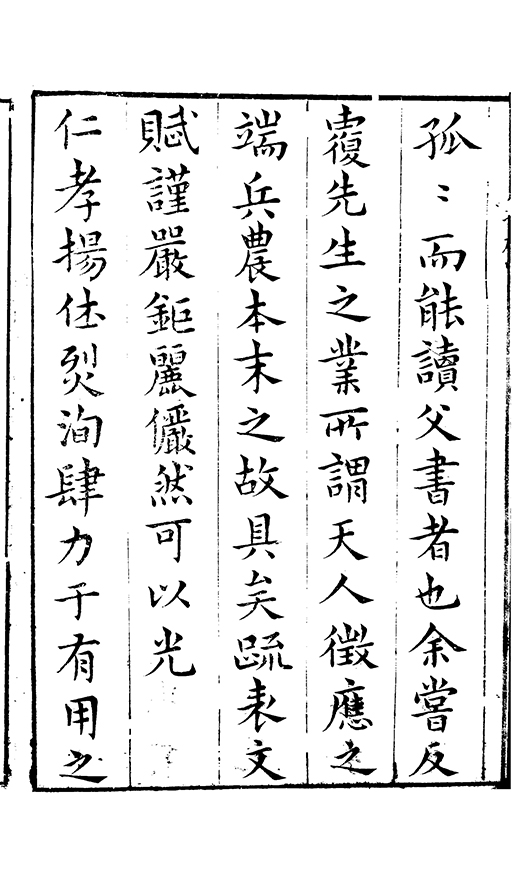 孤〻而能讀父書者也余嘗反
覆先生之業所謂天人徵應之
端兵農本末之故具矣䟽表文
賦謹嚴鉅麗儼然可以光
仁孝揚仕烈洵肆力于有用之